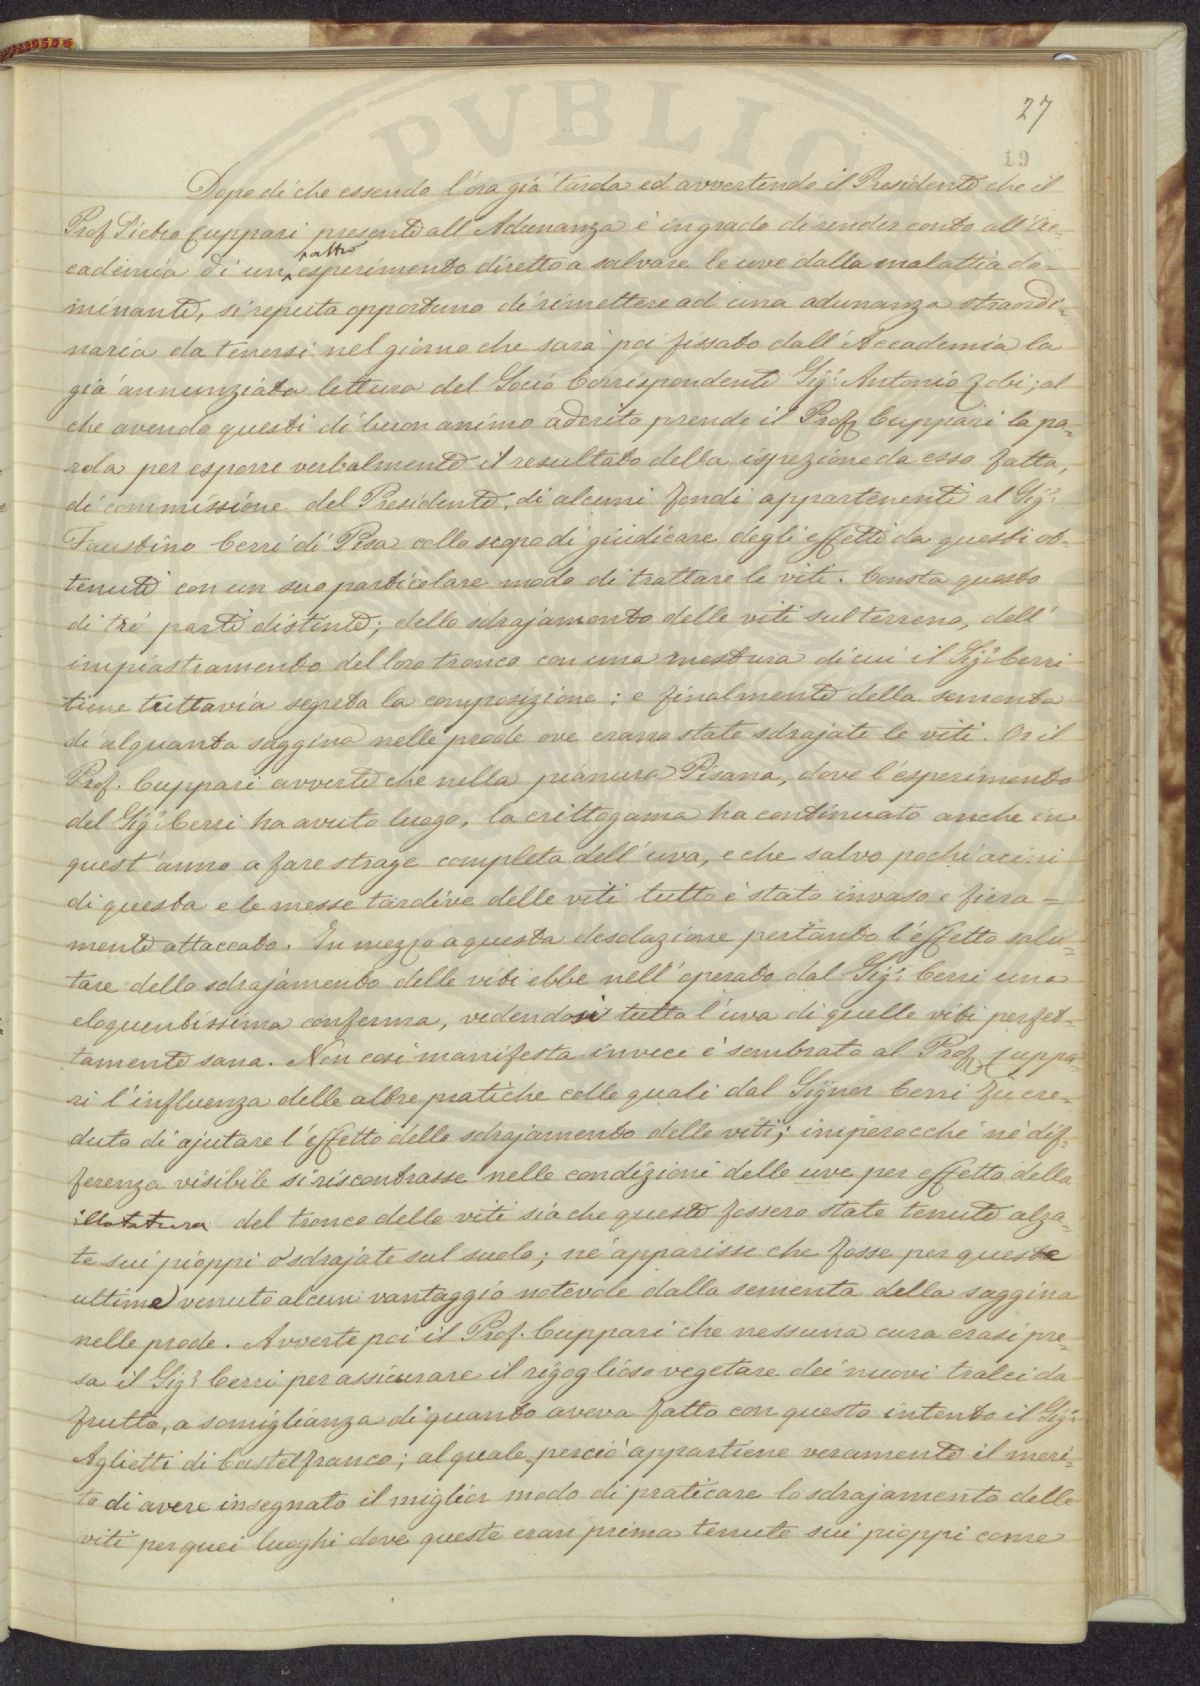 27
19
Dopo di che essendo l'ora già tarda ed avvertendo il Presidente che il
Prof Pietro Cuppari presente all'Adunanza è in grado di render conto all'Ac-
cademia di un altro esperimento diretto a salvare le uve dalla malattia do-
minante, si reputa opportuno di rimettere ad una adunanza straordi-
naria da tenersi nel giorno che sarà poi fissato dall'Accademia la
già annunziata lettura del Socio Corrispondente Sig.r Antonio Zobi; al
che avendo questi di buon animo aderito prende il Prof. Cuppari la pa-
rola per esporre verbalmente il resultato della ispezione da esso fatta,
di commissione del Presidente, di alcuni fondi appartenenti al Sig.r
Faustino Cerri di Pisa collo scopo di giudicare degli effetti da questi ot-
tenuti con un suo particolare modo di trattare le viti. Consta questo
di tré parti distinte; dello sdrajamento delle viti sul terreno, dell'
impiastramento del loro tronco con una mestura di cui il Sig.r Cerri
tiene tuttavia segreta la composizione; e finalmente della sementa
di alquanta saggina nelle prode ove erano state sdrajate le viti. Or il
Prof. Cuppari avverte che nella pianura Pisana, dove l'esperimento
del Sig.r Cerri ha avuto luogo, la crittogama ha continuato anche in
quest'anno a fare strage completa dell'uva, e che salvo pochi acini
di questa e le messe tardive delle viti tutto è stato invaso e fiera=
mente attaccato. In mezzo a questa desolazione pertanto l'effetto salu-
tare dello sdrajamento delle viti ebbe nell'operato dal Sig.r Cerri una
eloquentissima conferma, vedendosi tutta l'uva di quelle viti perfet-
tamente sana. Non così manifesta invece è sembrata al Prof. Cuppa-
ri l'influenza delle altre pratiche colle quali dal Signor Cerri fu cre-
duto di ajutare l'effetto dello sdrajamento delle viti; imperocchè nè dif-
ferenza visibile si riscontrasse nelle condizioni delle uve per effetto della
illotatura del tronco delle viti sia che queste fossero state tenute alza-
te sui pioppi o sdrajate sul suolo; nè apparisse che fosse per queste
ultime venuto alcun vantaggio notevole dalla sementa della saggina
nelle prode. Avverte poi il Prof. Cuppari che nessuna cura erasi pre-
sa il Sig.r Cerri per assicurare il rigoglioso vegetare dei nuovi tralci da
frutto, a somiglianza di quanto aveva fatto con questo intento il Sig.r
Aglietti di Castelfranco; al quale perciò appartiene veramente il meri-
to di avere insegnato il miglior modo di praticare lo sdrajamento delle
viti per quei luoghi dove queste eran prima tenute sui pioppi come
PVBLIC